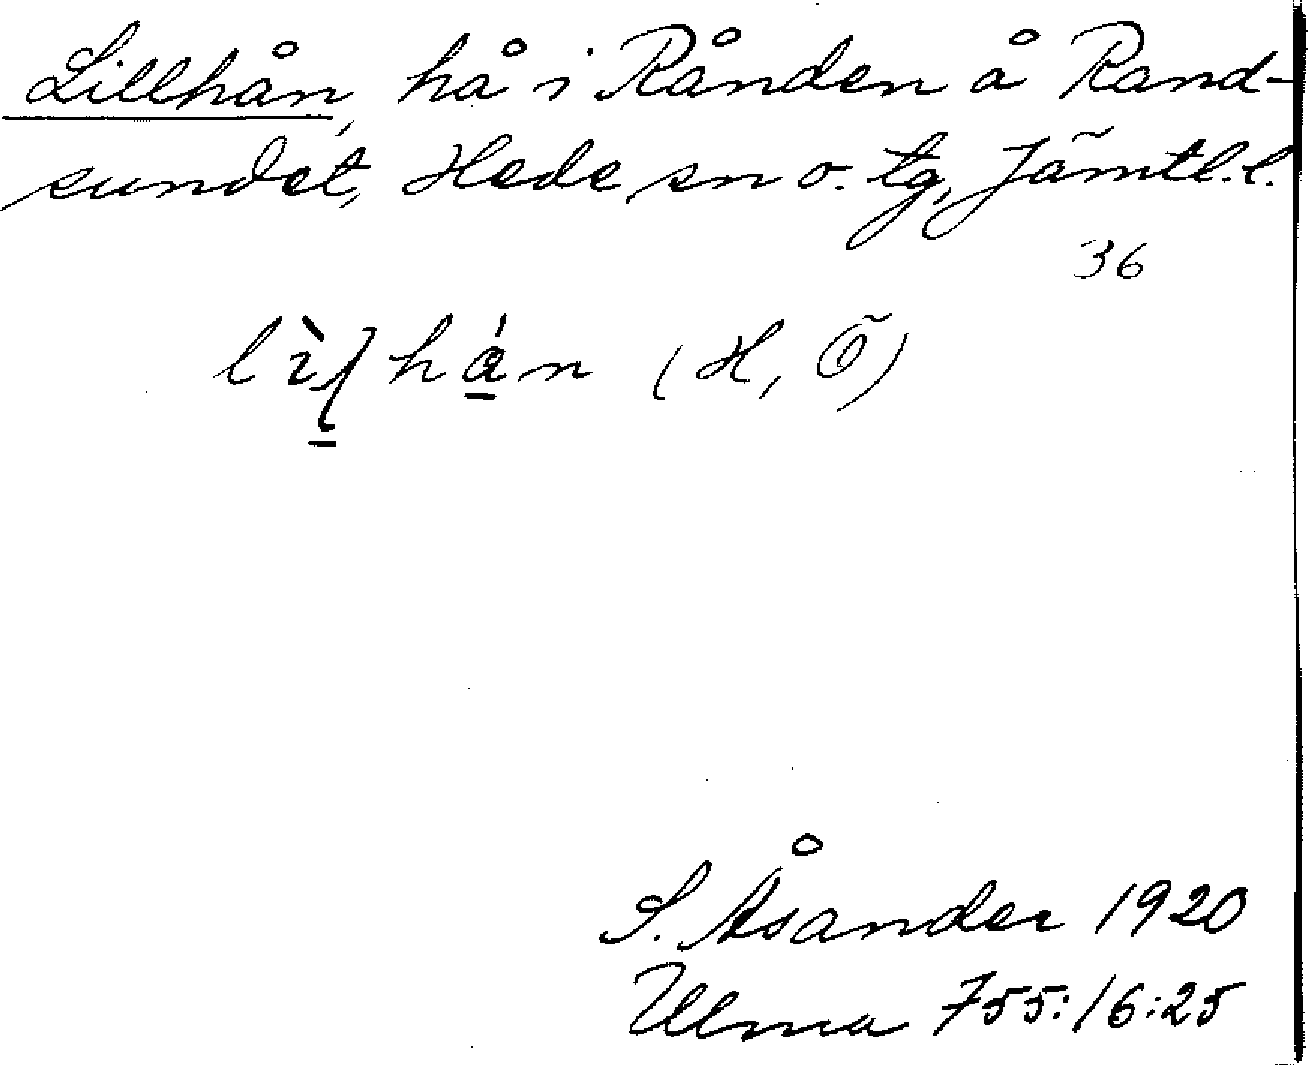 Lillhån, hå i Rånden å Rand-
sundet, Hede sn o. tg, Jämtl.l.
36
(H, Ö)
S. Åsander 1920
Ulma 755:16:25